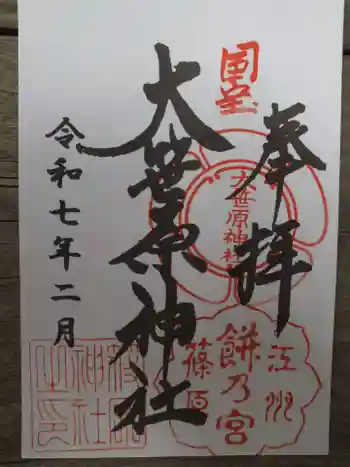 奉拝
国宝
大笹原神社
江州
餅乃宮
篠原
大笹原神社
令和七年二月